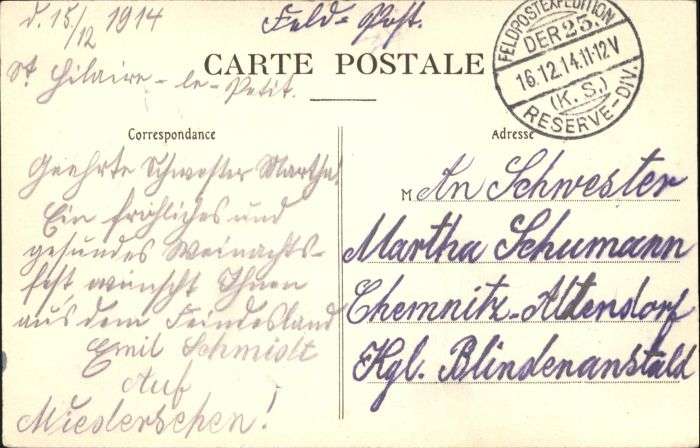 d. 15/12 1914
Feld-Post.
St. Hilaire-le-Petit.
CARTE POSTALE
FELDPOSTEXPEDITION
DER 23.
16.12.14.11-12V
(K.S.)
RESERVE-DIV.
Correspondance
Geehrte Schwester Martha!
Ein fröhliches und
gesundes Weinachts-
fest, wünscht Ihnen
aus dem Feindesland
Emil Schmidt
Auf
Wiedersehen!
Adresse
M An Schwester
Martha Schumann
Chemnitz-Altendorf
Kgl. Blindenanstald